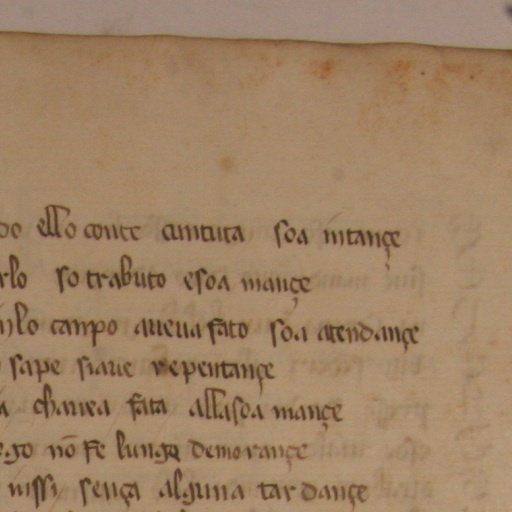 do ello conte cuntuta soa intançe
rlo so trabuto e soa mançe
lo canpo aueua fato soa atendançe
sape siaue repentançe
chauea fata alla soa mançe
ego nō fe lunga demorançe
nissi sença alguna tardançe